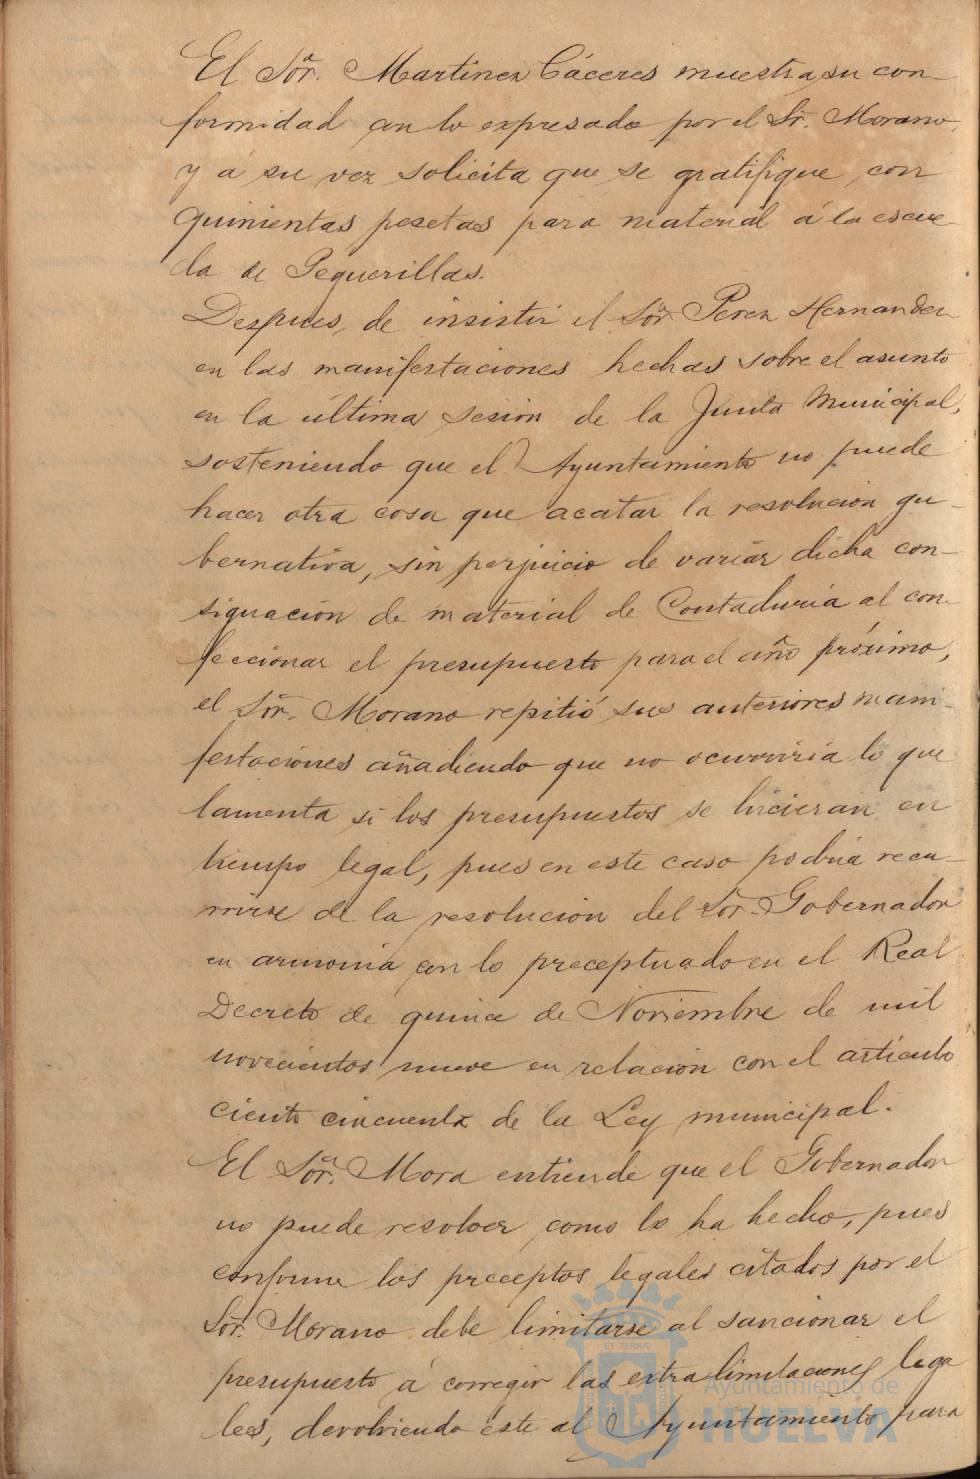 El Sör. Martinez Cáceres muestra su con-
formidad con lo expresado por el Sr. Morano,
y á su vez solicita que se gratifique con
quinientas pesetas para material á la escue-
la de Peguerillas.
Despues de insistir el Sör Perez Hernandez
en las manifestaciones hechas sobre el asunto
en la última sesion de la Junta Municipal,
sosteniendo que el Ayuntamiento no puede
hacer otra cosa que acatar la resolucion gu-
bernativa, sin perjuicio de variar dicha con-
signación de material de Contaduria al con-
feccionar el presupuesto para el año próximo,
el Sör. Morano repitió sus anteriores mani-
festaciones añadiendo que no ocurriria lo que
lamenta si los presupuestos se hicieran en
tiempo legal, pues en este caso podria recu-
rrirse de la resolución del Sör. Gobernador
en armonia con lo preceptuado en el Real
Decreto de quince de Noviembre de mil
novecientos nueve en relación con el articulo
ciento cincuenta de la Ley municipal.
El Sör. Mora entiende que el Gobernador
no puede resolver como lo ha hecho, pues
conforme los preceptos legales citados por el
Sör. Morano debe limitarse al sancionar el
presupuesto á corregir las extralimitaciones lega
les, devolviendo este al Ayuntamiento para
Ayuntamiento de
HUELVA